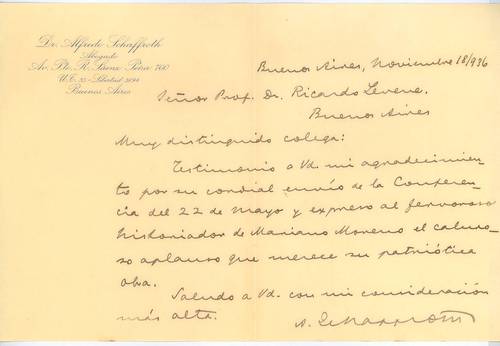 Dr. Alfredo Schaffroth
Abogado
Av. Pte. R. Sáenz Peña 760
U.T. 35 - Libertad
Buenos Aires
Buenos Aires, Noviembre 18/936
Señor Prof. Dr. Ricardo Levene.
Buenos Aires
Muy distinguido colega:
Testimonio a Vd. mi agradecimien-
to por su cordial envío de la Conferen-
cia del 22 de Mayo y expreso al fervoroso
historiador de Mariano Moreno el caluro-
so aplauso que merece su patriótica
obra.
Saludo a Vd. con mi consideración
más alta.
A. Schaffroth